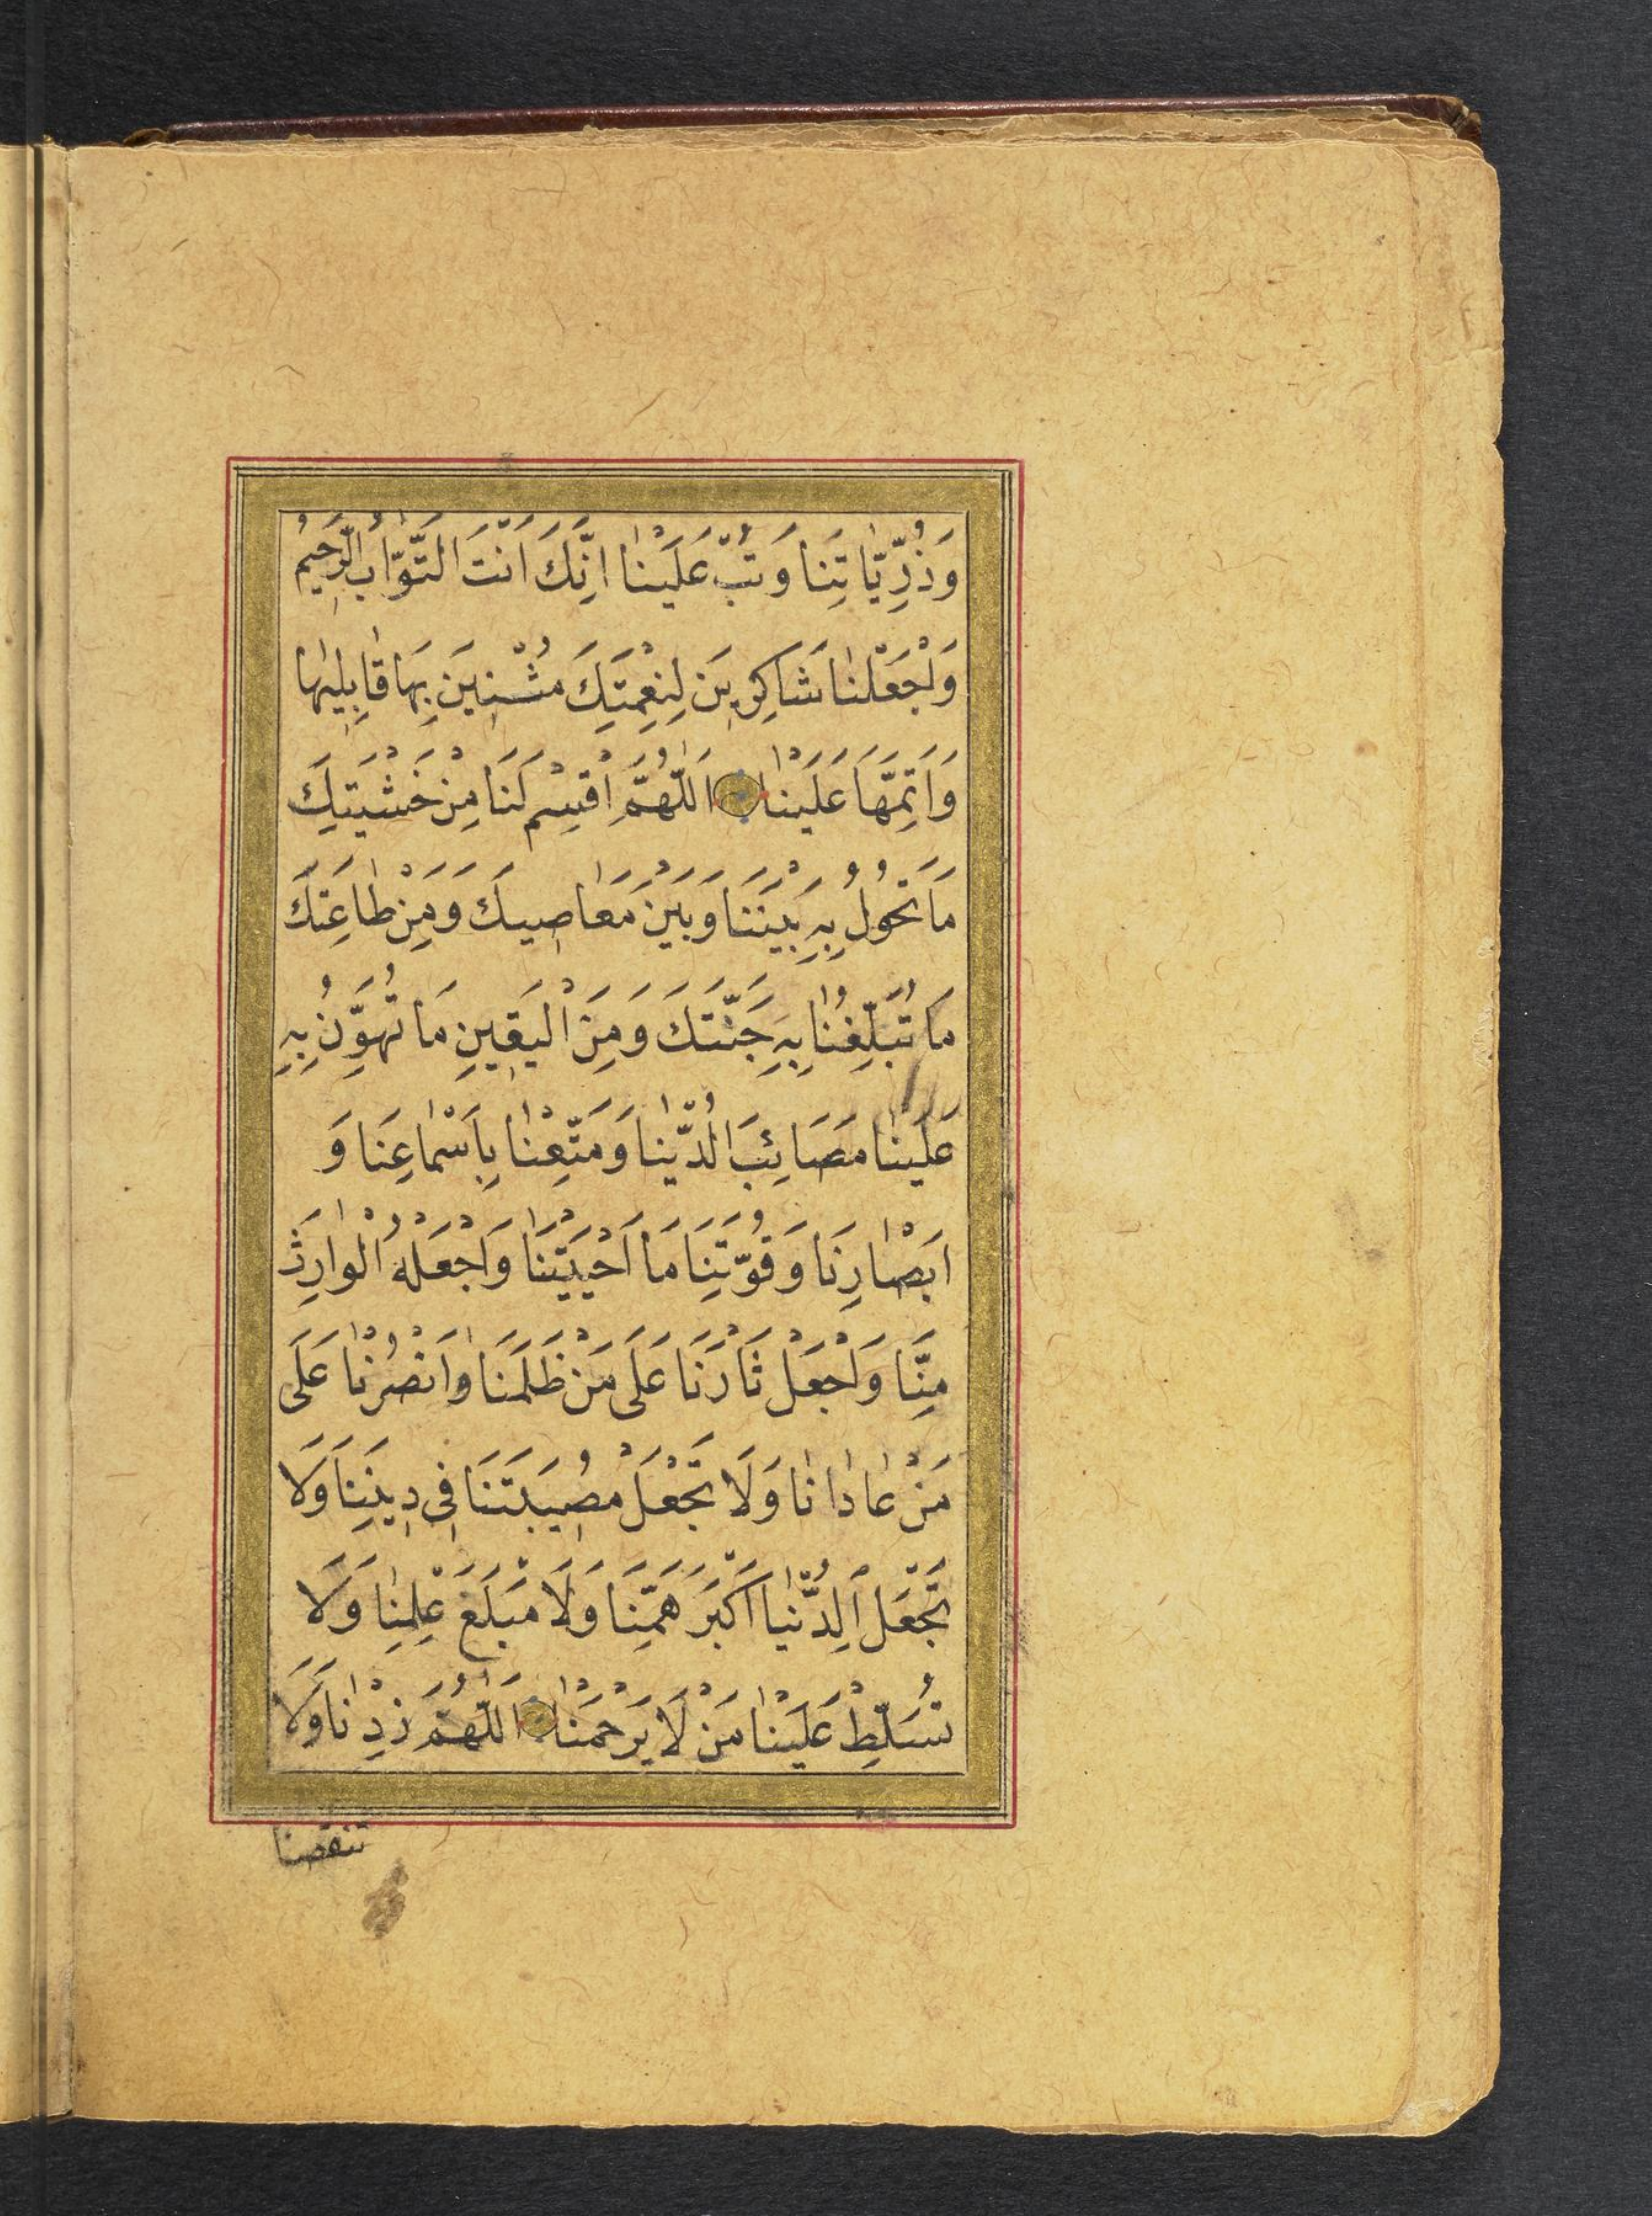 وَذُرِّيَّاتِنَا وَتُبْ عَلَيْنَا اِنَّكَ اَنْتَ التَّوَّابُ الرَّحِيمُ
وَاجْعَلْنَا شَاكِرِينَ لِنِعْمَتِكَ مُثْنِينَ بِهَا قَابِلِيهَا
وَاَتِمَّهَا عَلَيْنَا اَللّٰهُمَّ اقْسِمْ لَنَا مِنْ خَشْيَتِكَ
مَا تَحُولُ بِهِ بَيْنَنَا وَبَيْنَ مَعَاصِيكَ وَمِنْ طَاعَتِكَ
مَا تُبَلِّغُنَا بِهِ جَنَّتَكَ وَمِنَ الْيَقِينِ مَا تُهَوِّنُ بِهِ
عَلَيْنَا مَصَائِبَ الدُّنْيَا وَمَتِّعْنَا بِاَسْمَاعِنَا وَ
اَبْصَارِنَا وَقُوَّتِنَا مَا اَحْيَيْتَنَا وَاجْعَلْهُ الْوَارِثَ
مِنَّا وَاجْعَلْ ثَارَنَا عَلَى مَنْ ظَلَمَنَا وَانْصُرْنَا عَلَى
مَنْ عَادَانَا وَلَا تَجْعَلْ مُصِيبَتَنَا فِى دِينِنَا وَلَا
تَجْعَلِ الدُّنْيَا اَكْبَرَ هَمِّنَا وَلَا مَبْلَغَ عِلْمِنَا وَلَا
تُسَلِّطْ عَلَيْنَا مَنْ لَا يَرْحَمُنَا اَللّٰهُمَّ زِدْنَا وَلَا
تنقصنا